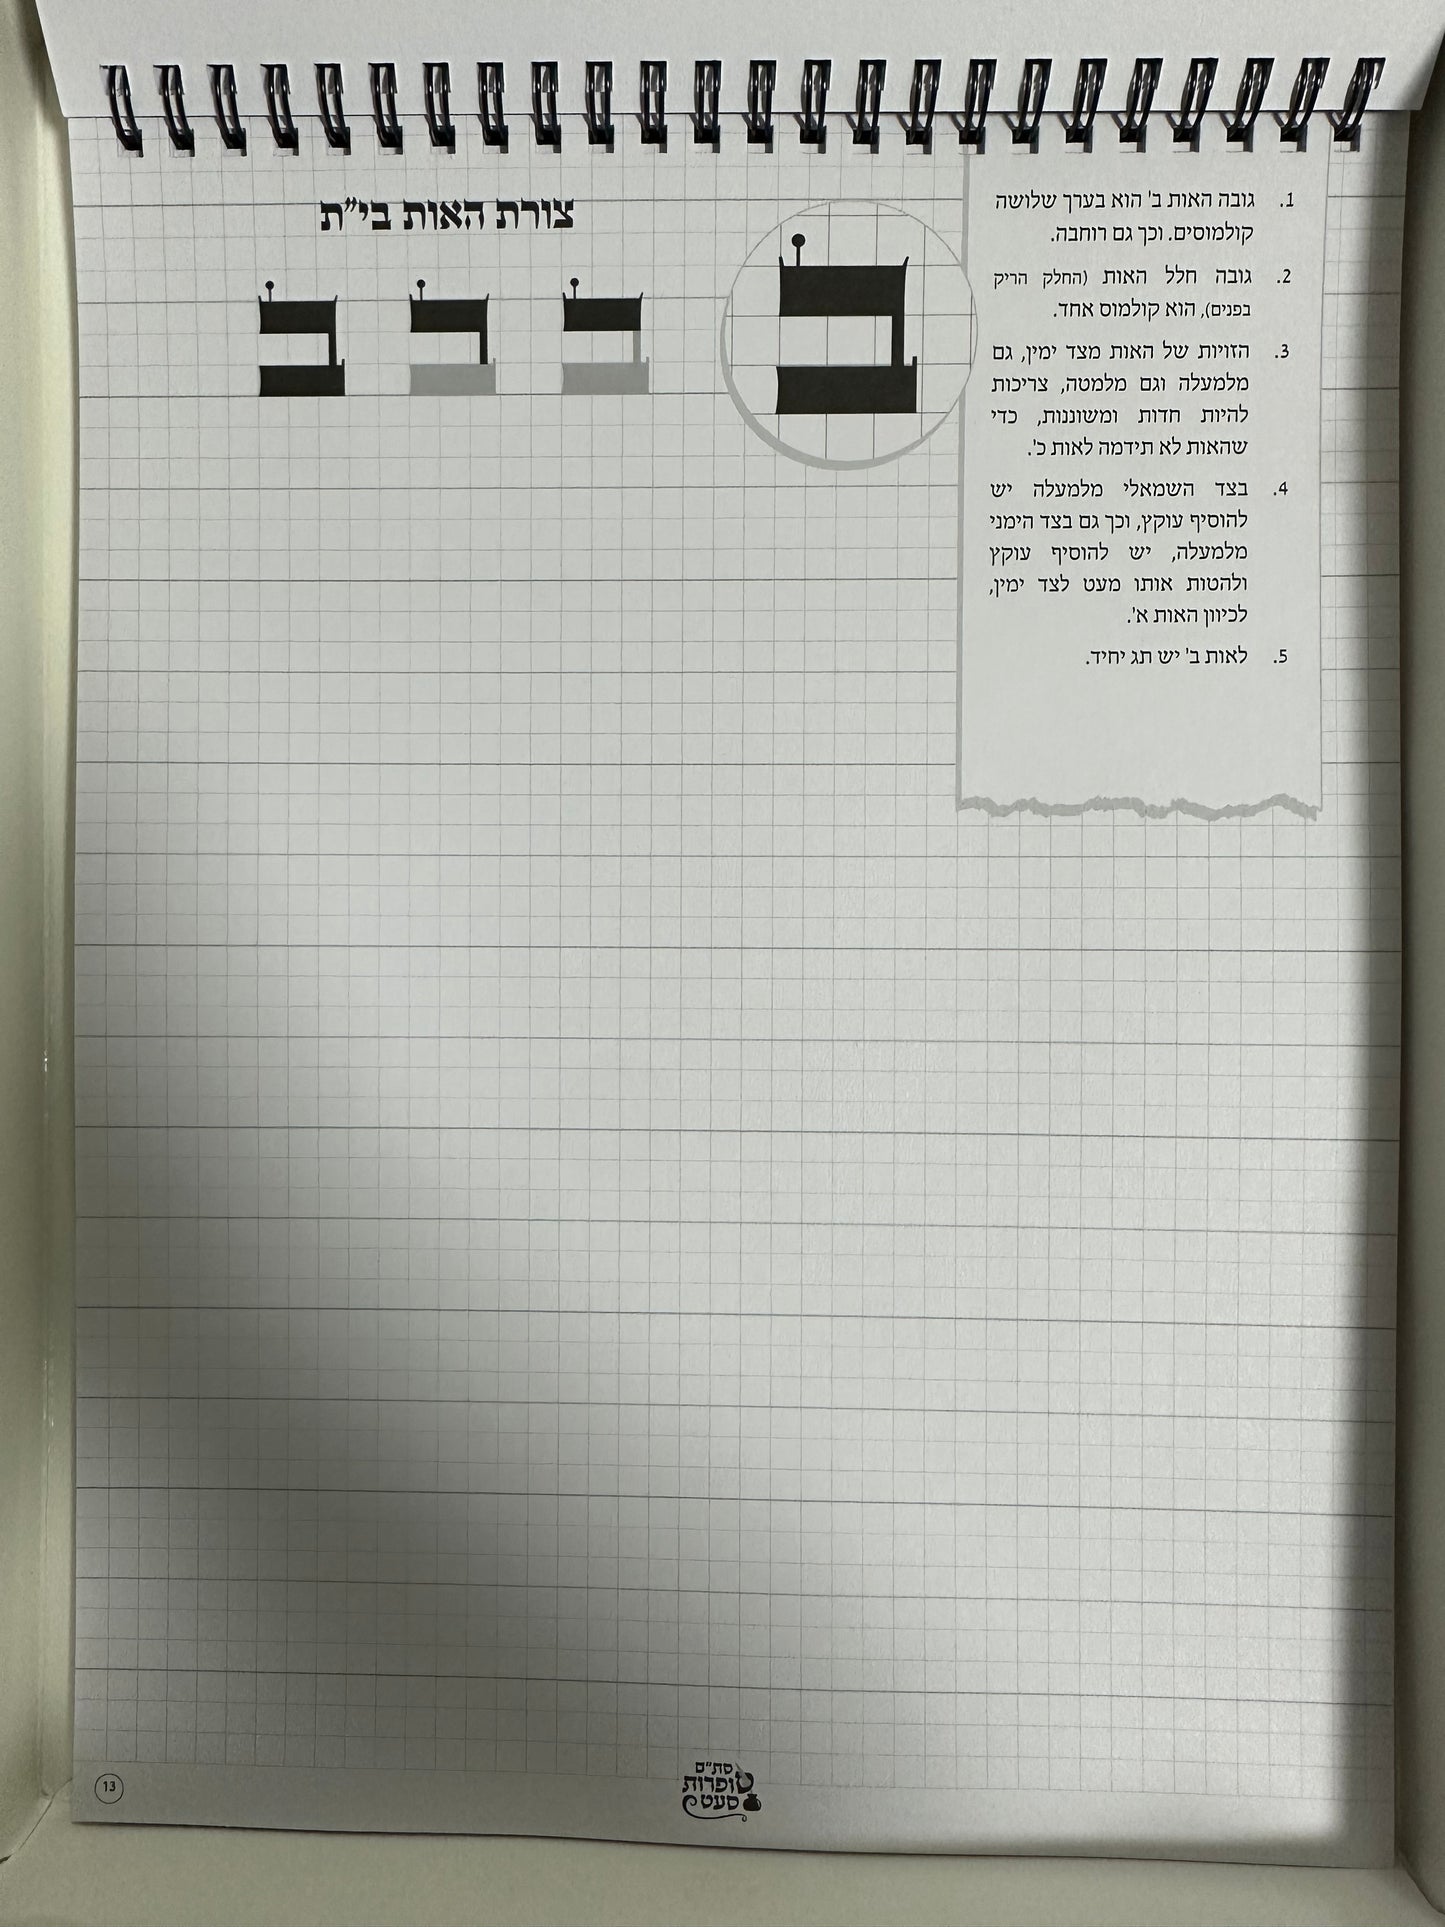 צורת האות בי״ת
ב
ב
1. גובה האות ב' הוא בערך שלושה
קולמוסים. וכך גם רוחבה.
2. גובה חלל האות (החלק הריק
בפנים), הוא קולמוס אחד.
3. הזויות של האות מצד ימין, גם
מלמעלה וגם מלמטה, צריכות
להיות חדות ומשוננות, כדי
שהאות לא תידמה לאות כ'.
4. בצד השמאלי מלמעלה יש
להוסיף עוקץ, וכך גם בצד הימני
מלמעלה, יש להוסיף עוקץ
ולהטות אותו מעט לצד ימין,
לכיוון האות א'.
5. לאות ב' יש תג יחיד.
סת״ם
סופרות
סעט
13